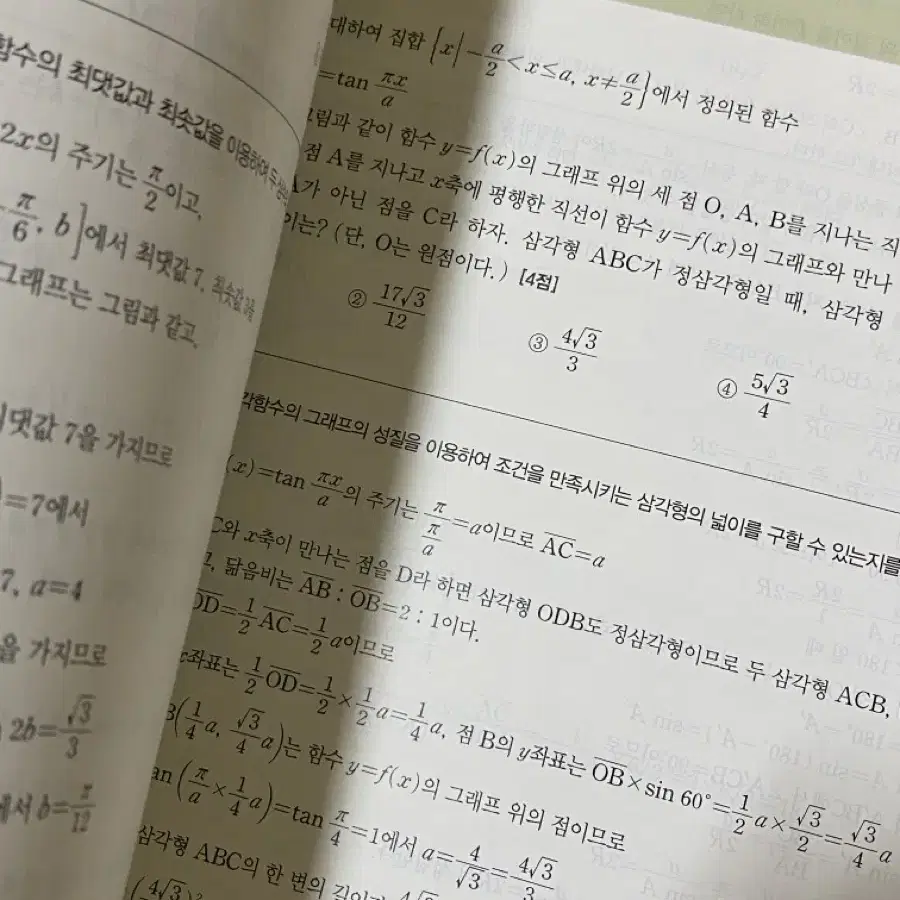 함수의 최댓값과 최솟값을 이용하여
2x의 주기는 π/2이고,
π/6, b]에서 최댓값 7, 최솟값
그래프는 그림과 같고,
최댓값 7을 가지므로
)=7에서
7, a=4
을 가지므로
2b=√3/3
에서 b=π/12
대하여 집합 {x|-a/2<x≤a, x≠a/2}에서 정의된 함수
=tan πx/a
그림과 같이 함수 y=f(x)의 그래프 위의 세 점 O, A, B를 지나는 직
점 A를 지나고 x축에 평행한 직선이 함수 y=f(x)의 그래프와 만나
A가 아닌 점을 C라 하자. 삼각형 ABC가 정삼각형일 때, 삼각형
이는? (단, O는 원점이다.) [4점]
② 17√3/12
③ 4√3/3
④ 5√3/4
각함수의 그래프의 성질을 이용하여 조건을 만족시키는 삼각형의 넓이를 구할 수 있는지를
(x)=tan πx/a의 주기는 π/(π/a)=a이므로 A̅C̅=a
C와 x축이 만나는 점을 D라 하면 삼각형 ODB도 정삼각형이므로 두 삼각형 ACB,
, 닮음비는 A̅B̅ : O̅B̅=2 : 1이다.
O̅D̅=1/2 A̅C̅=1/2 a이므로
x좌표는 1/2 O̅D̅=1/2×1/2 a=1/4 a, 점 B의 y좌표는 O̅B̅×sin 60°=1/2 a×√3/2=√3/4 a
B(1/4 a, √3/4 a)는 함수 y=f(x)의 그래프 위의 점이므로
tan(π/a×1/4 a)=tan π/4=1에서 a=4/√3=4√3/3
삼각형 ABC의 한 변의 길이가 4√3
(4√3)²